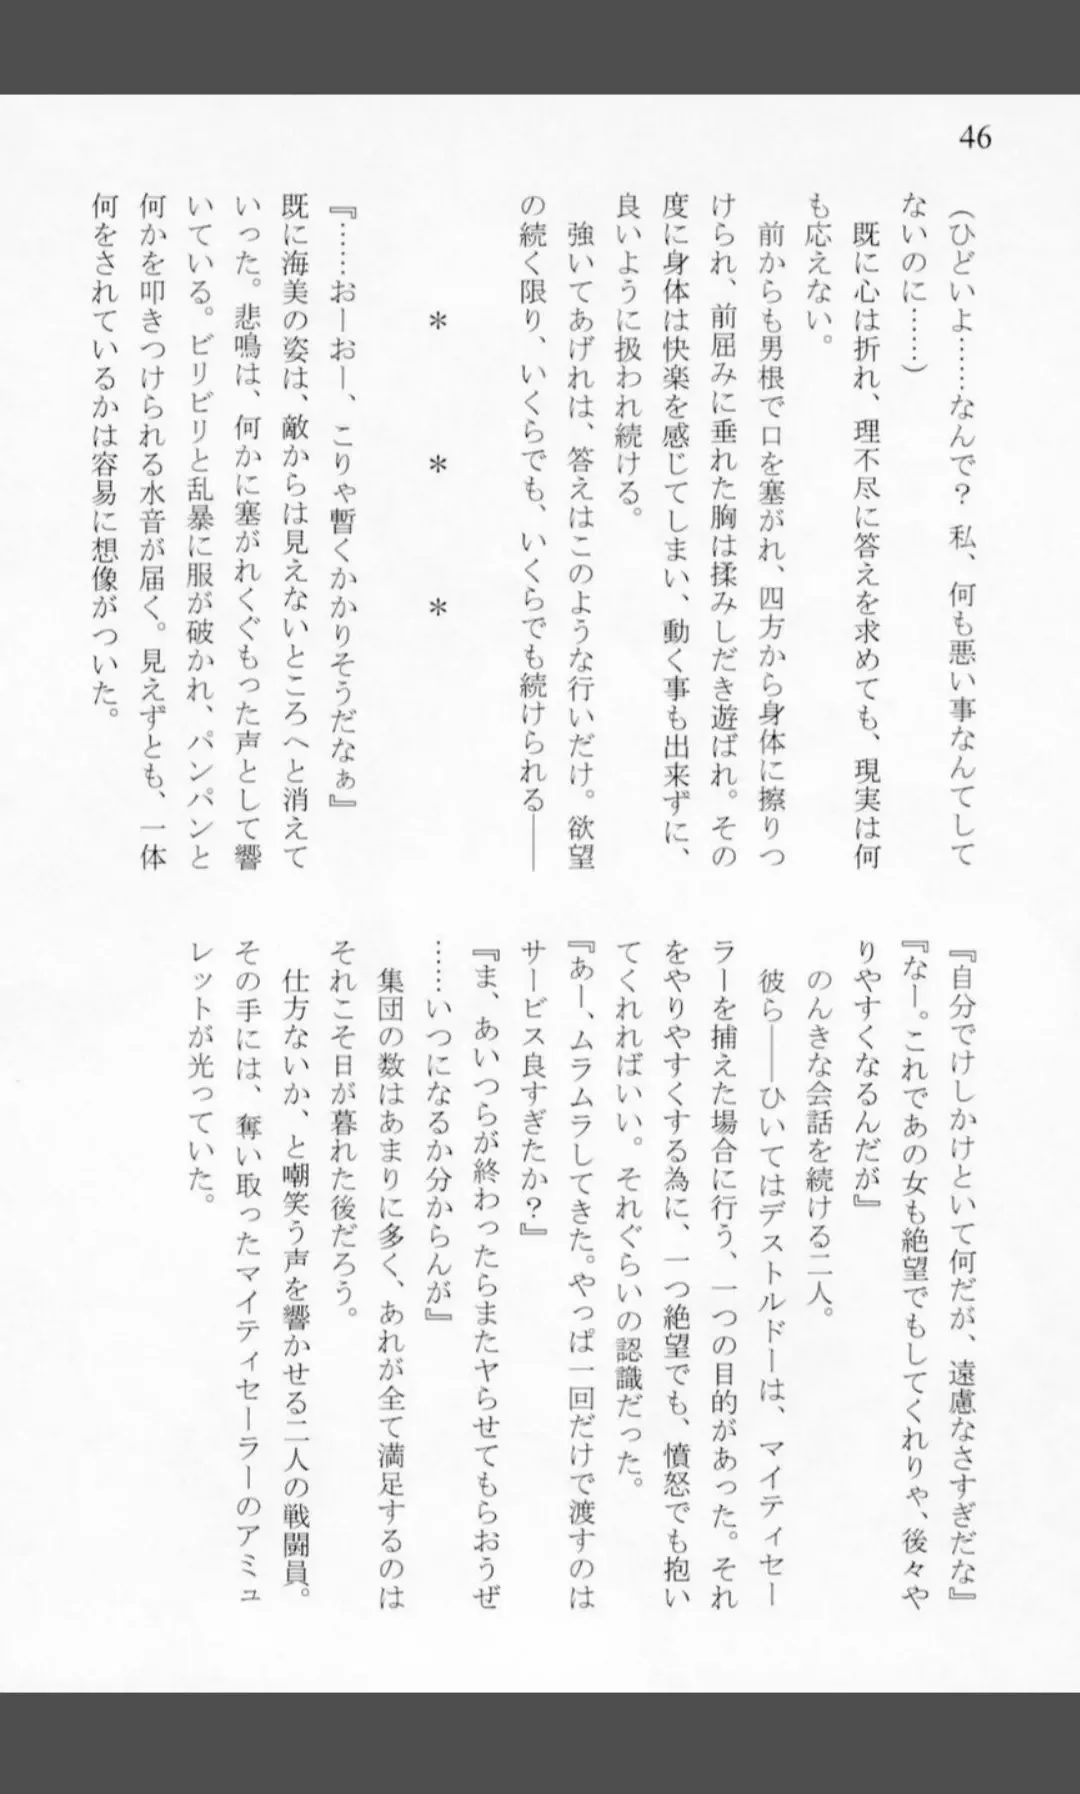 46
（ひどいよ……なんで？　私、何も悪い事なんてして
ないのに……）
　既に心は折れ、理不尽に答えを求めても、現実は何
も応えない。
　前からも男根で口を塞がれ、四方から身体に擦りつ
けられ、前屈みに垂れた胸は揉みしだき遊ばれ。その
度に身体は快楽を感じてしまい、動く事も出来ずに、
良いように扱われ続ける。
　強いてあげれは、答えはこのような行いだけ。欲望
の続く限り、いくらでも、いくらでも続けられる――
＊　＊　＊
『……おーおー、こりゃ暫くかかりそうだなぁ』
既に海美の姿は、敵からは見えないところへと消えて
いった。悲鳴は、何かに塞がれくぐもった声として響
いている。ビリビリと乱暴に服が破かれ、パンパンと
何かを叩きつけられる水音が届く。見えずとも、一体
何をされているかは容易に想像がついた。
『自分でけしかけといて何だが、遠慮なさすぎだな』
『なー。これであの女も絶望でもしてくれりゃ、後々や
りやすくなるんだが』
　のんきな会話を続ける二人。
　彼ら――ひいてはデストルドーは、マイティセー
ラーを捕えた場合に行う、一つの目的があった。それ
をやりやすくする為に、一つ絶望でも、憤怒でも抱い
てくれればいい。それぐらいの認識だった。
『あー、ムラムラしてきた。やっぱ一回だけで渡すのは
サービス良すぎたか？』
『ま、あいつらが終わったらまたヤらせてもらおうぜ
……いつになるか分からんが』
　集団の数はあまりに多く、あれが全て満足するのは
それこそ日が暮れた後だろう。
　仕方ないか、と嘲笑う声を響かせる二人の戦闘員。
その手には、奪い取ったマイティセーラーのアミュ
レットが光っていた。